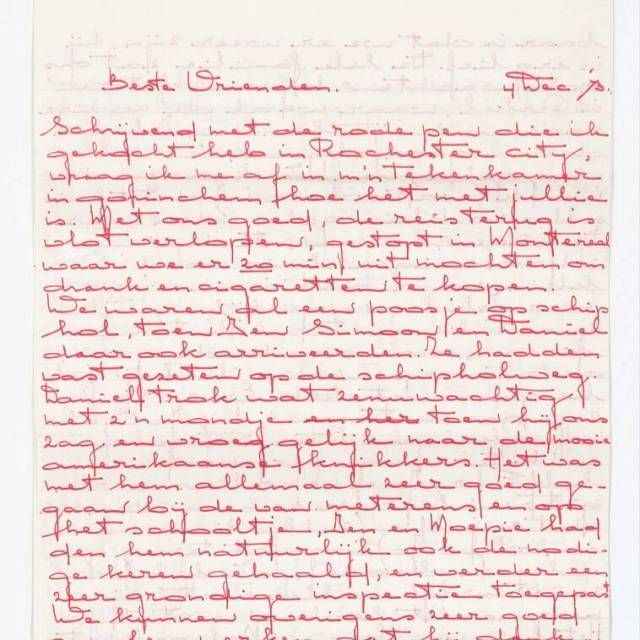 Beste Vrienden. 4 Dec /s.
Schrijvend met de rode pen die ik
gekocht heb in Rochester city,
vraag ik me af in m'n tekenkamer
in gorinchem hoe het met jullie
is. Met ons goed, de reis terug is
vlot verlopen, gestopt in Montreal
waar we er 20 min uit mochten om
drank en cigaretten te kopen.
We waren al een poosje op schip
hol, toen Ben Simoon en Daniel
daar ook arriveerden. Ze hadden
vast gezeten op de schipholweg.
Daniel trok wat zenuwachtig
met z'n mondje en her toen hij ons
zag en vroeg gelijk naar de mooie
amerikaanse knikkers. Het was
met hem allemaal zeer goed ge-
gaan bij de van meterens en op
het schooltje, Ben en Moepie had
den hem natuurlijk ook de nodi-
ge keren gehaald, en verder een
zeer grondige inspectie toegepast
We kunnen overigens zeer goed